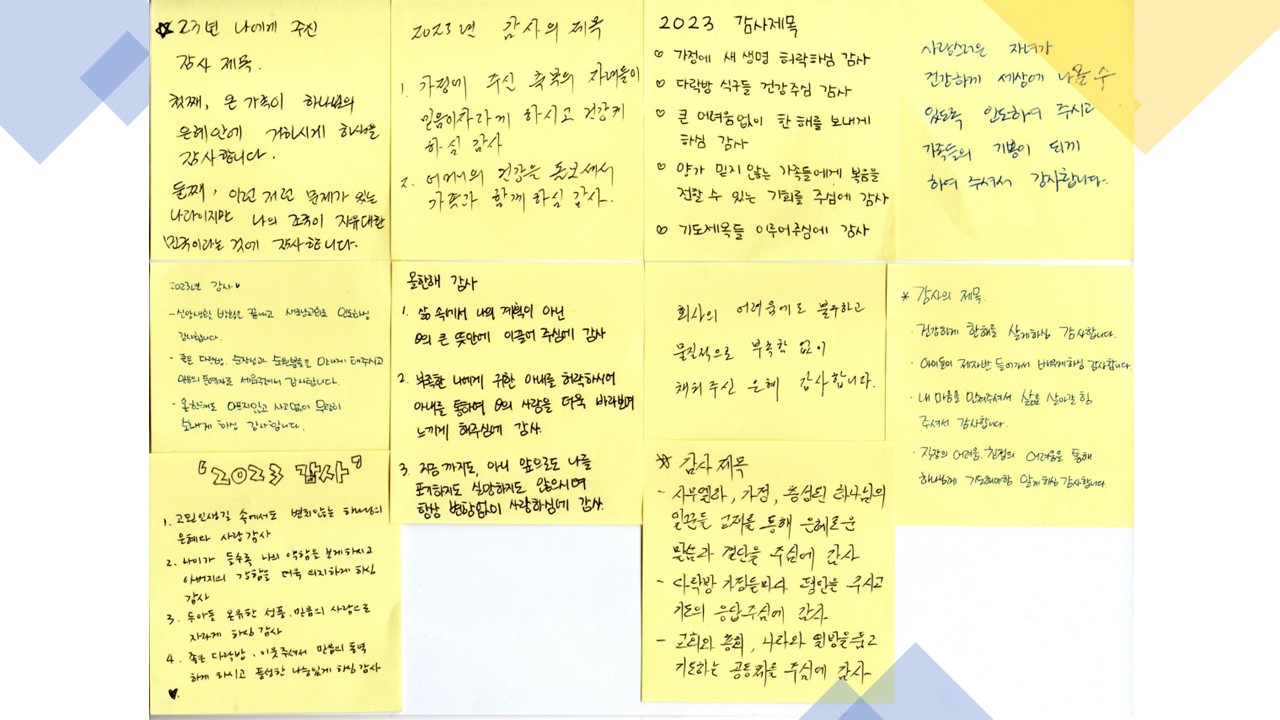 ☆ 23년 나에게 주신
감사 제목.
첫째, 온 가족이 하나님의
은혜안에 거하시게 하심을
감사합니다.
둘째, 이런 저런 문제가 있는
나라이지만 나의 조국이 자유대한
민국이라는 것에 감사합니다.
2023년 감사의 제목
1. 가정에 주신 축복의 자녀들이
믿음이 자라게 하시고 건강케
하심 감사
2. 어머니의 건강은 돌보셔서
가족과 함께 하심 감사.
2023 감사제목
♡ 가정에 새 생명 허락하심 감사
♡ 다락방 식구들 건강주심 감사
♡ 큰 어려움없이 한 해를 보내게
하심 감사
♡ 양가 믿지 않는 가족들에게 복음을
전할 수 있는 기회를 주심에 감사
♡ 기도제목들 이루어주심에 감사
사랑스러운 자녀가
건강하게 세상에 나올 수
있도록 인도하여 주시고
가족들의 기쁨이 되게
하여 주셔서 감사합니다.
2023년 감사♥
- 신앙생활 방황은 끝내고 사랑교회로 인도하심
감사합니다.
- 좋은 다락방, 순장님과 순원분들을 만나게 해주시고
세워주셔서 감사합니다.
- 올 한해도 아프지않고 사고없이 무탈히
보내게 하심 감사합니다.
올한해 감사
1. 삶 속에서 나의 계획이 아닌
θ의 큰 뜻안에 이끌어 주심에 감사
2. 부족한 나에게 귀한 아내를 허락하시어
아내를 통하여 θ의 사랑을 더욱 바라보며
느끼게 해주심에 감사.
3. 지금 까지도, 아니 앞으로도 나를
포기하지도 실망하지도 않으시며
항상 변함없이 사랑하심에 감사.
회사의 어려움에도 불구하고
물질적으로 부족함 없이
채워주신 은혜 감사합니다.
* 감사의 제목.
· 건강하게 한해를 살게하심 감사합니다.
· 아이들이 제자반 들어가서 배우게하심 감사합니다.
· 내 마음을 만져주셔서 삶을 살아갈 힘
주셔서 감사합니다.
· 직장의 어려움, 친정의 어려움을 통해
하나님께 기도해야함 알게하심 감사합니다.
"2023 감사"
1. 고된 인생길 속에서도 변치않는 하나님의
은혜와 사랑 감사
2. 나이가 들수록 나의 약함을 보게하시고
아버지의 강함을 더욱 의지하게 하심
감사
3. 두아들 온유한 성품, 믿음의 사람으로
자라게 하심 감사
4. 좋은 다락방, 이웃주셔서 믿음의 동역
하게 하시고 풍성한 나눔있게 하심 감사
♥.
☆ 감사제목
- 사무엘하, 가정, 충성된 하나님의
일꾼들 교재를 통해 은혜로운
말씀과 결단을 주심에 감사
- 다락방 가정들마다 평안을 주시고
기도의 응답주심에 감사
- 교회와 총회, 나라와 열방을품고
기도하는 공동체를 주심에 감사